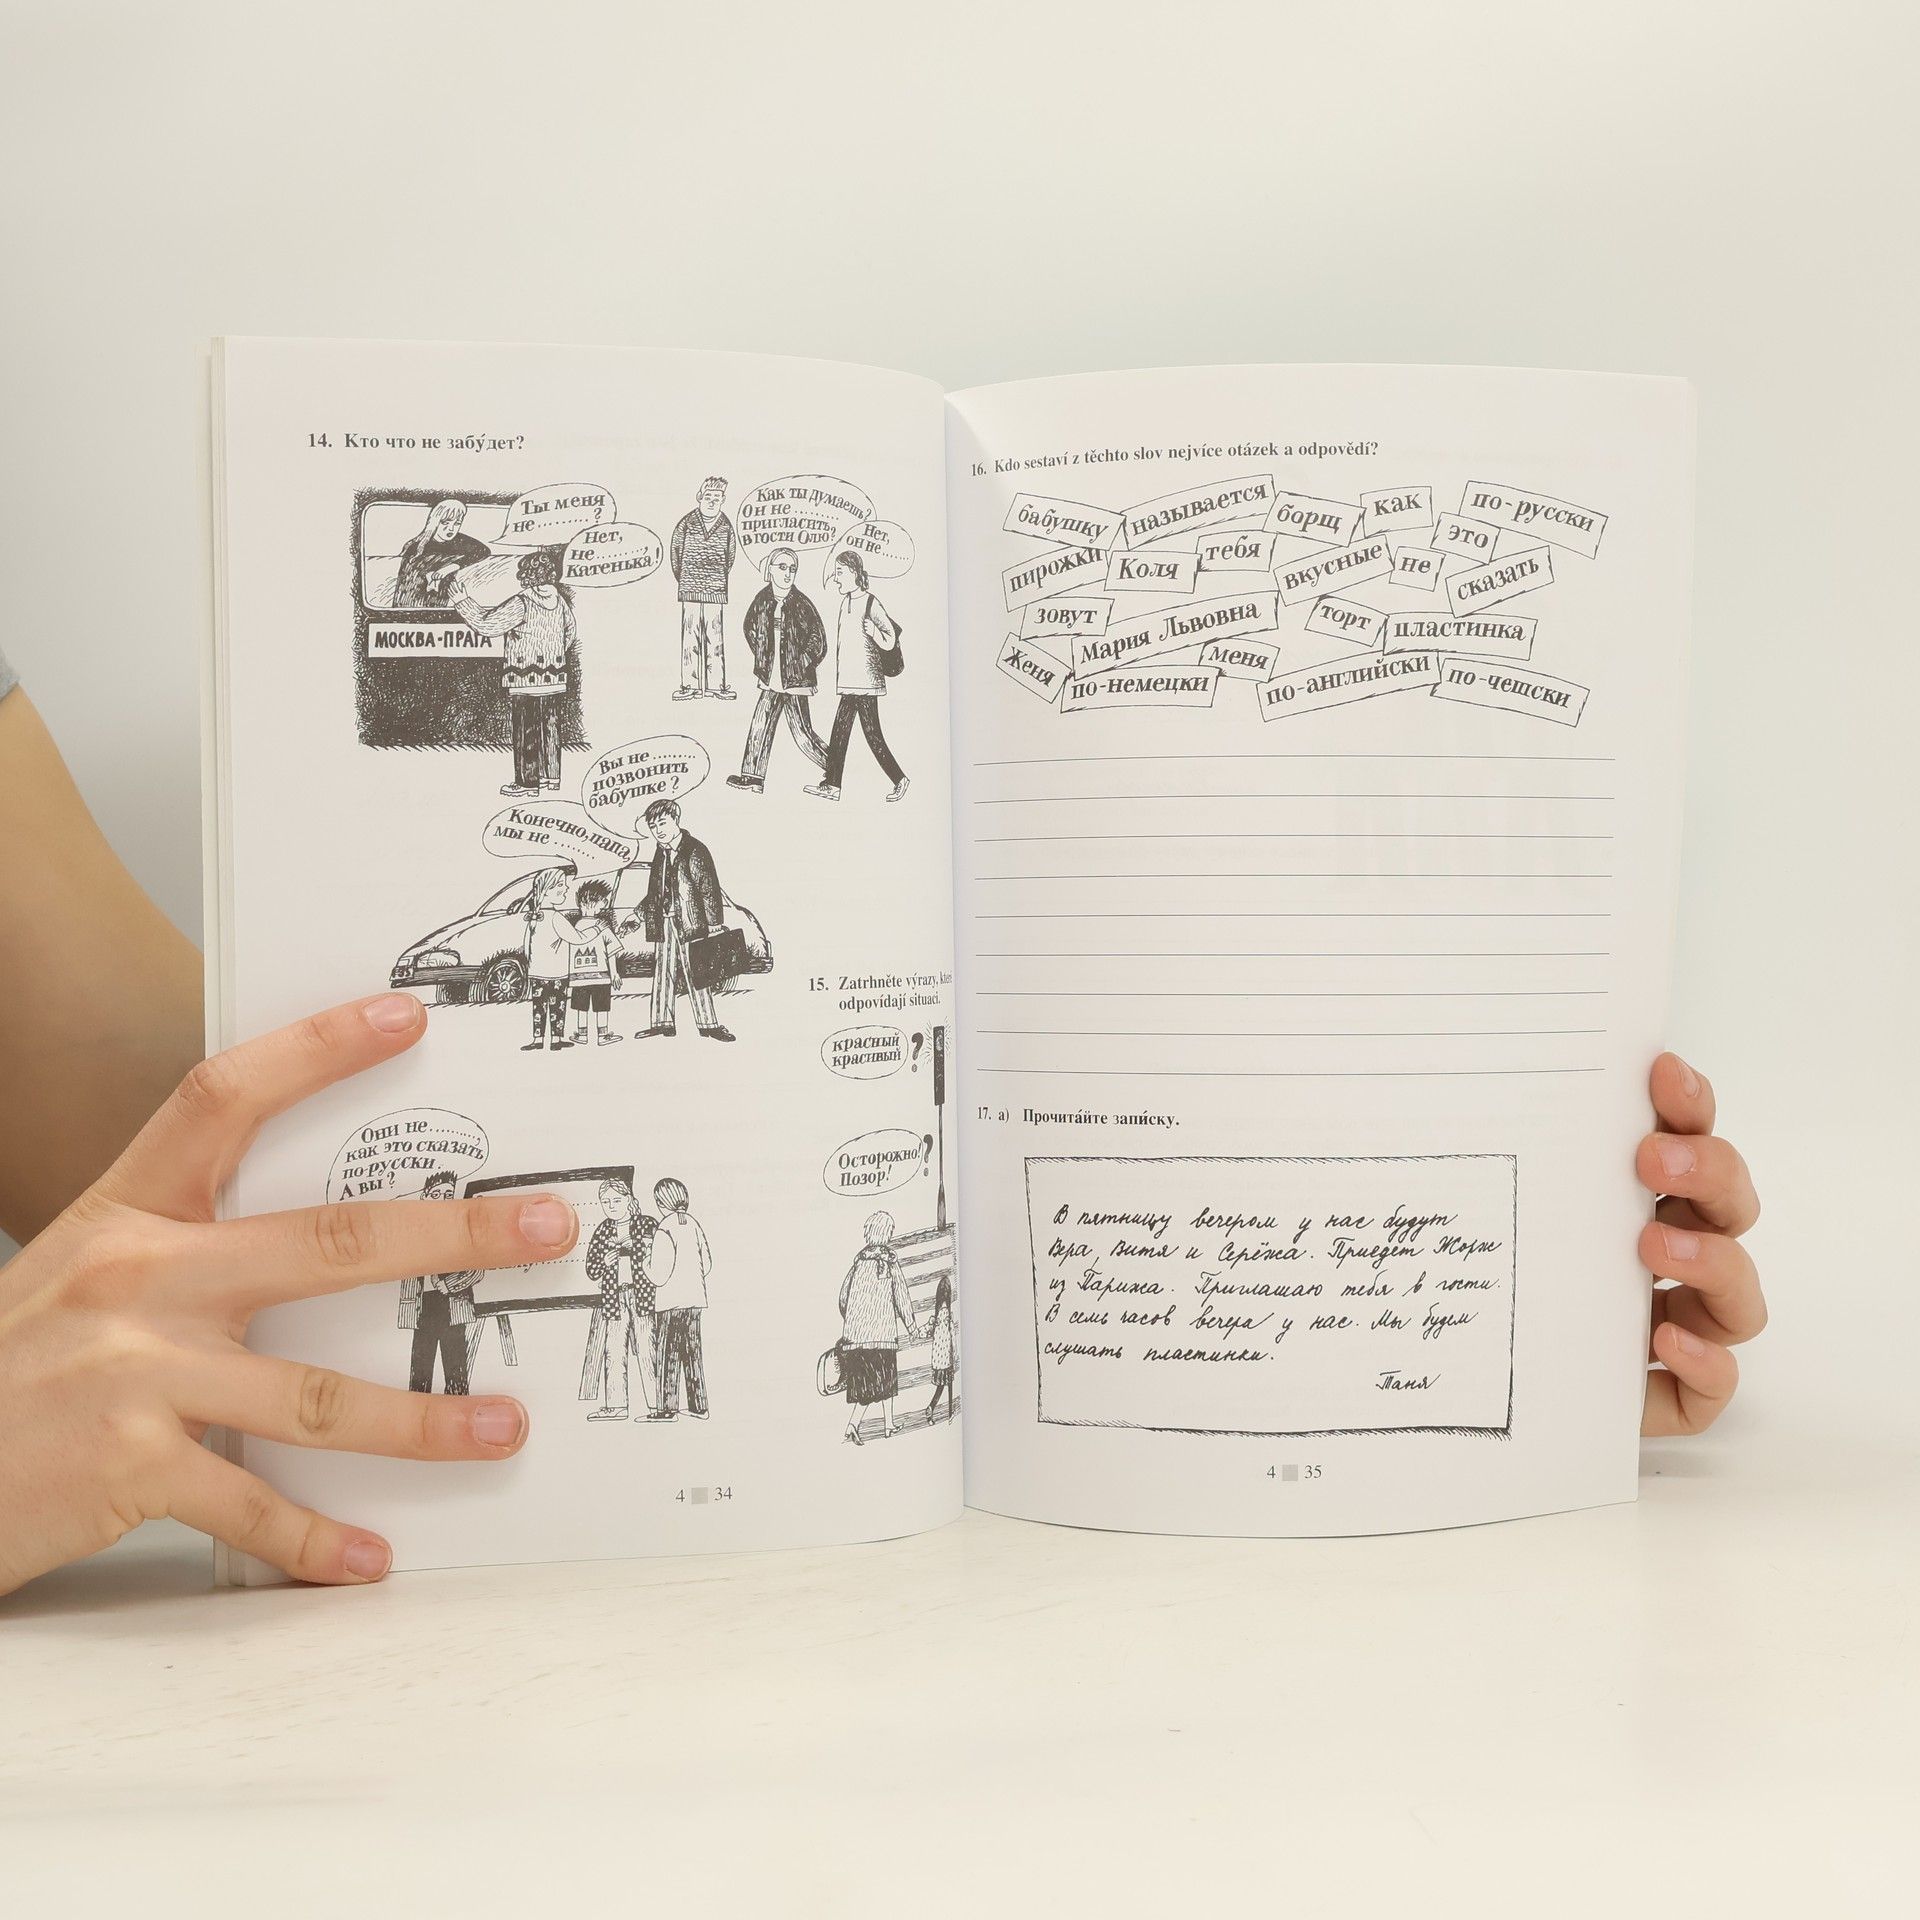 14. Кто что не забу́дет?
Ты меня
не .........?
Нет,
не.........,
Катенька!
МОСКВА-ПРАГА
Как ты думаешь?
Он не .........
пригласить
в гости Олю?
Нет,
он не......
Вы не .........
позвонить
бабушке?
Конечно, папа,
мы не ........
15. Zatrhněte výrazy,
odpovídají situaci.
красный
красивый
?
Осторожно!
Позор!
?
Они не.........,
как это сказать
по-русски.
А вы?
4 34
16. Kdo sestaví z těchto slov nejvíce otázek a odpovědí?
бабушку называется борщ как по-русски
пирожки Коля тебя вкусные не это сказать
зовут Мария Львовна торт пластинка
Женя по-немецки меня по-английски по-чешски
17. a) Прочита́йте запи́ску.
В пятницу вечером у нас будут
Вера, Витя и Серёжа. Приедет Жорж
из Парижа. Приглашаю тебя в гости.
В семь часов вечера у нас. Мы будем
слушать пластинки.
Таня
4 35